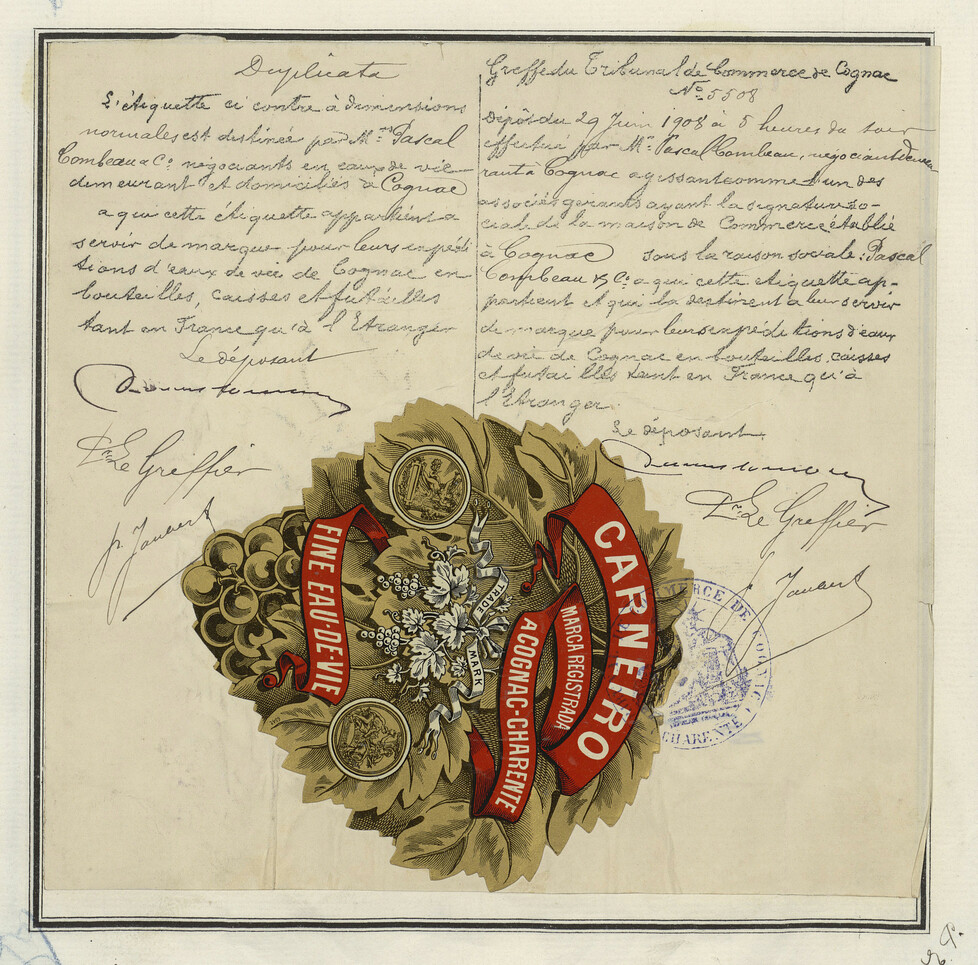 Duplicata
L'étiquette ci contre à dimensions
normales est destinée par Mrs Pascal
Combeau & Co négociants en eaux de vie
demeurant et domiciliés à Cognac
a qui cette étiquette appartient a
servir de marque pour leurs expédi
tions d'eaux de vie de Cognac en
bouteilles, caisses et futailles
tant en France qu'à l'Etranger
Le déposant
Le Greffier
Greffe du Tribunal de Commerce de Cognac
No 5508
Dépôt du 29 Juin 1908 à 5 heures du soir
effectué par Mr Pascal Combeau, négociant demeu
rant à Cognac agissant comme l'un des
associés gérants ayant la signature so-
ciale de la maison de Commerce établie
à Cognac sous la raison sociale: Pascal
Combeau & Co a qui cette étiquette ap-
partient et qui la destinent a leur servir
de marque pour leurs expéditions d'eaux
de vie de Cognac en bouteilles, caisses
et futailles tant en France qu'à
l'Etranger.
Le déposant,
Le Greffier
CARNEIRO
MARCA REGISTRADA
A COGNAC-CHARENTE
TRADE
MARK
FINE EAU-DE-VIE
COMMERCE DE COGNAC
CHARENTE